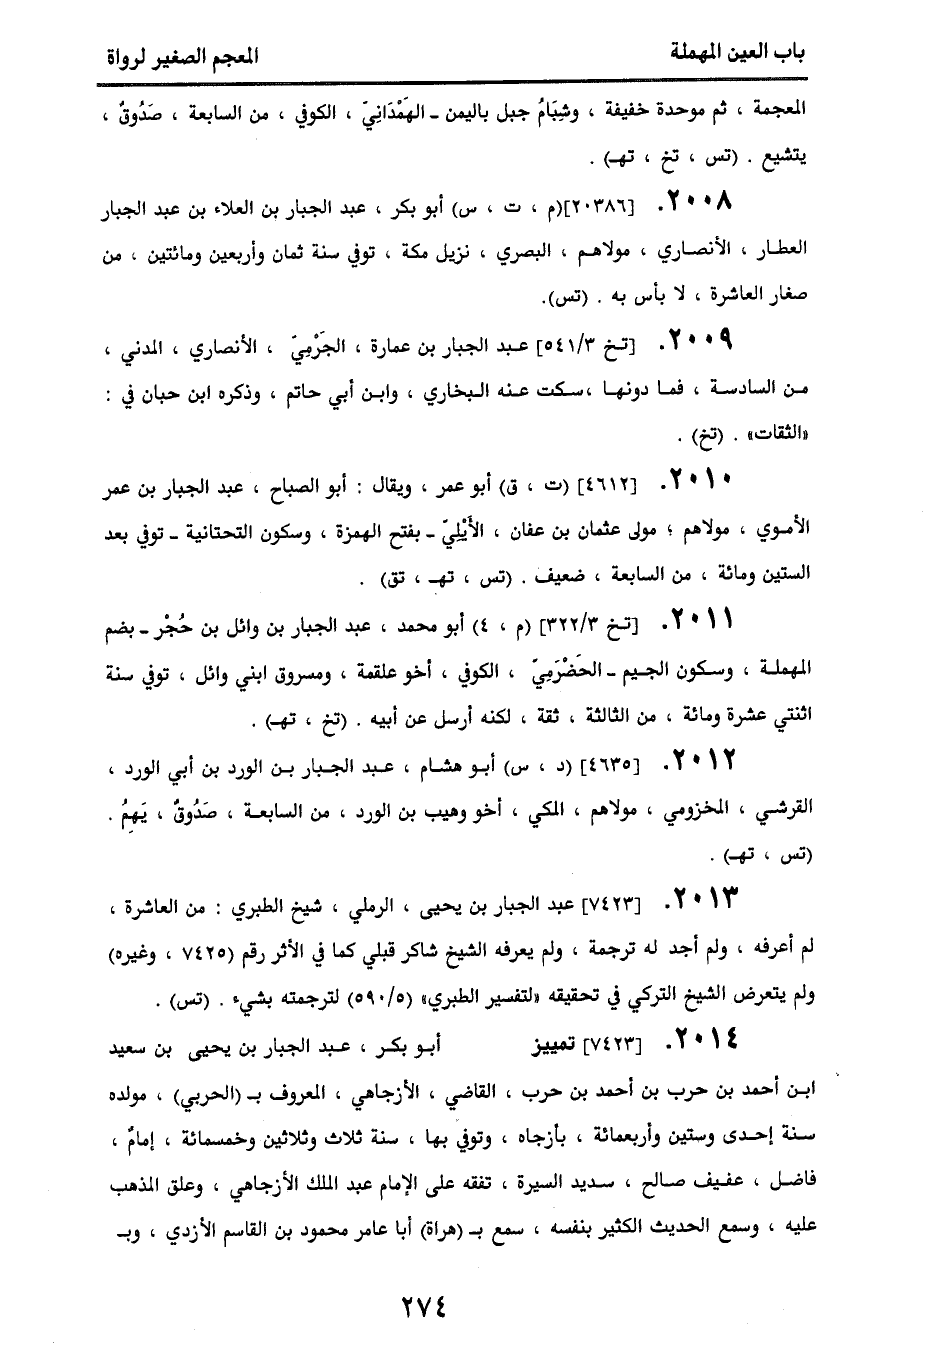 باب العين المهملة
المعجم الصغير لرواة
المعجمة ، ثم موحدة خفيفة ، وشِبَامُ جبل باليمن ـ الهَمْدَانِيّ ، الكوفي ، من السابعة ، صَدُوقٌ ،
يتشيع . (تس ، تخ ، تهـ) .
٢٠٠٨. [٢٠٣٨٦](م ، ت ، س) أبو بكر ، عبد الجبار بن العلاء بن عبد الجبار
العطار ، الأنصاري ، مولاهم ، البصري ، نزيل مكة ، توفي سنة ثمان وأربعين ومائتين ، من
صغار العاشرة ، لا بأس به . (تس).
٢٠٠٩. [تخ ٥٤١/٣] عبد الجبار بن عمارة ، الجَرْمِيّ ، الأنصاري ، المدني ،
من السادسة ، فما دونها ،سكت عنه البخاري ، وابن أبي حاتم ، وذكره ابن حبان في :
«الثقات» . (تخ) .
٢٠١٠. [٤٦١٢] (ت ، ق) أبو عمر ، ويقال : أبو الصباح ، عبد الجبار بن عمر
الأموي ، مولاهم ؛ مولى عثمان بن عفان ، الأَيْلِيّ ـ بفتح الهمزة ، وسكون التحتانية ـ توفي بعد
الستين ومائة ، من السابعة ، ضعيف . (تس ، تهـ ، تق) .
٢٠١١. [تخ ٣٢٢/٣] (م ، ٤) أبو محمد ، عبد الجبار بن وائل بن حُجْر ـ بضم
المهملة ، وسكون الجيم ـ الحَضْرَمِيّ ، الكوفي ، أخو علقمة ، ومسروق ابني وائل ، توفي سنة
اثنتي عشرة ومائة ، من الثالثة ، ثقة ، لكنه أرسل عن أبيه . (تخ ، تهـ) .
٢٠١٢. [٤٦٣٥] (د ، س) أبو هشام ، عبد الجبار بن الورد بن أبي الورد ،
القرشي ، المخزومي ، مولاهم ، المكي ، أخو وهيب بن الورد ، من السابعة ، صَدُوقٌ ، يَهِمُ .
(تس ، تهـ) .
٢٠١٣. [٧٤٢٣] عبد الجبار بن يحيى ، الرملي ، شيخ الطبري : من العاشرة ،
لم أعرفه ، ولم أجد له ترجمة ، ولم يعرفه الشيخ شاكر قبلي كما في الأثر رقم (٧٤٢٥ ، وغيره)
ولم يتعرض الشيخ التركي في تحقيقه «لتفسير الطبري» (٥٩٠/٥) لترجمته بشيء . (تس) .
٢٠١٤. [٧٤٢٣] تمييز أبو بكر ، عبد الجبار بن يحيى بن سعيد
ابن أحمد بن حرب بن أحمد بن حرب ، القاضي ، الأزجاهي ، المعروف بـ (الحربي) ، مولده
سنة إحدى وستين وأربعمائة ، بأزجاه ، وتوفي بها ، سنة ثلاث وثلاثين وخمسمائة ، إمامٌ ،
فاضل ، عفيف صالح ، سديد السيرة ، تفقه على الإمام عبد الملك الأزجاهي ، وعلق المذهب
عليه ، وسمع الحديث الكثير بنفسه ، سمع بـ (هراة) أبا عامر محمود بن القاسم الأزدي ، وبـ
٢٧٤